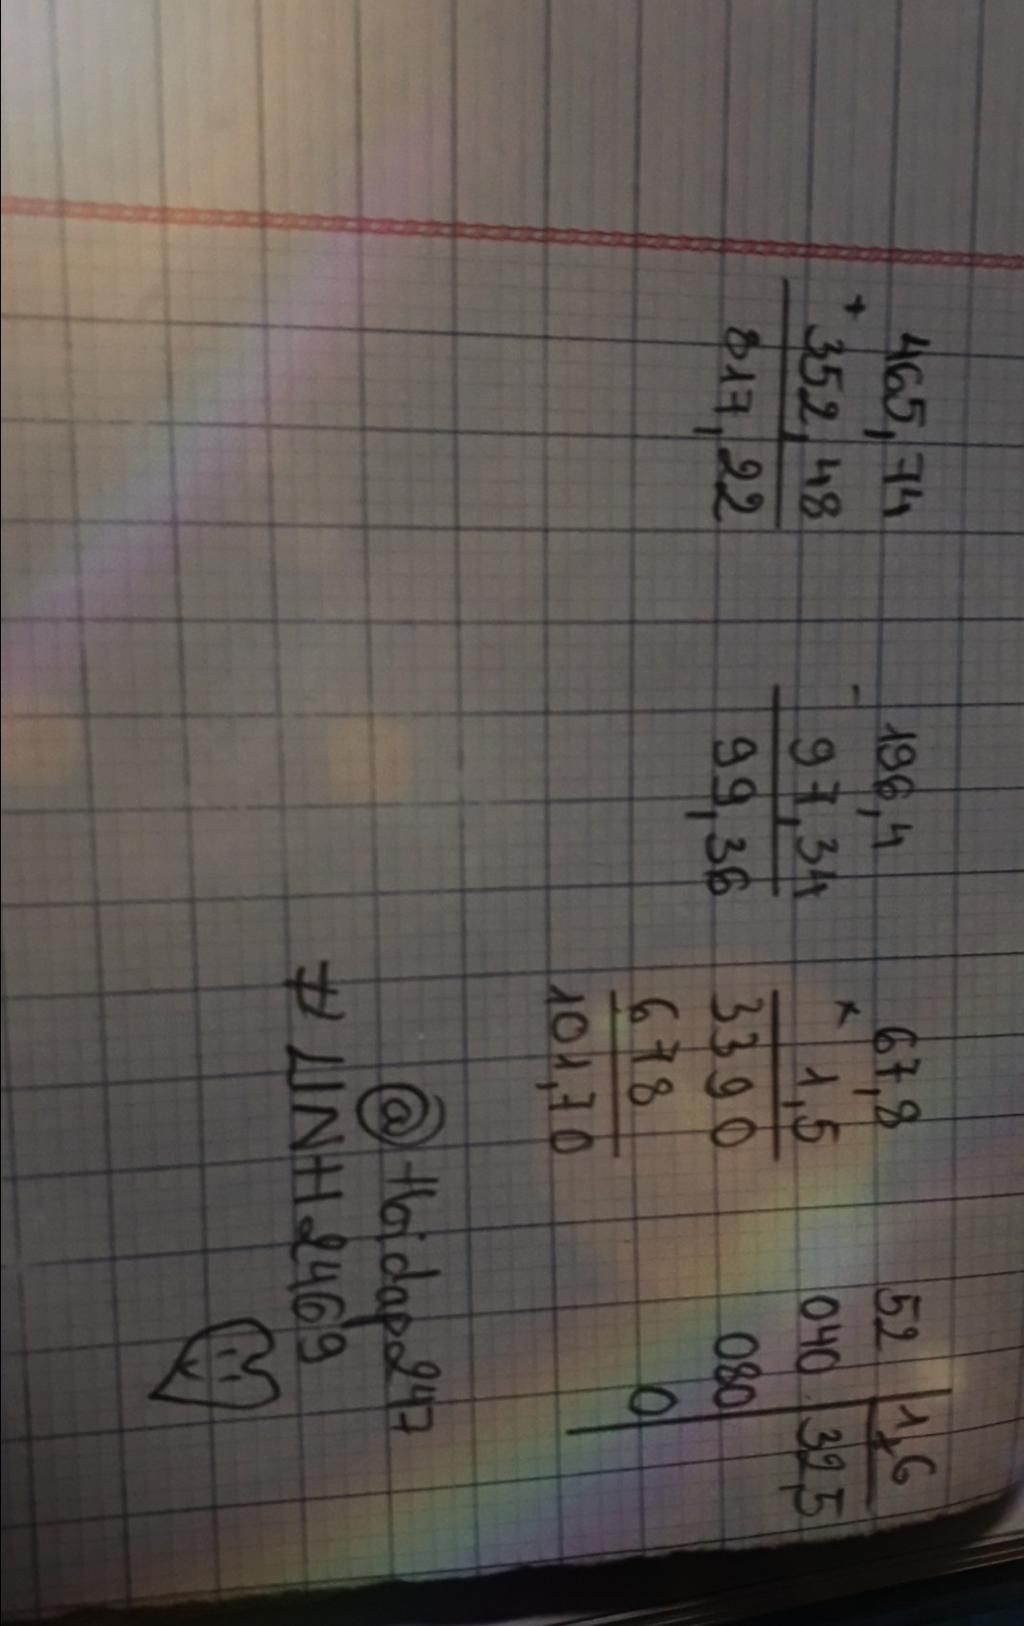 465,74
+
352,48
817,22
196,4
-
97,34
99,36
67,8
×
1,5
3390
678
101,70
52 1,6
040 32,5
080
0
@Hoidap247
#LINH2469